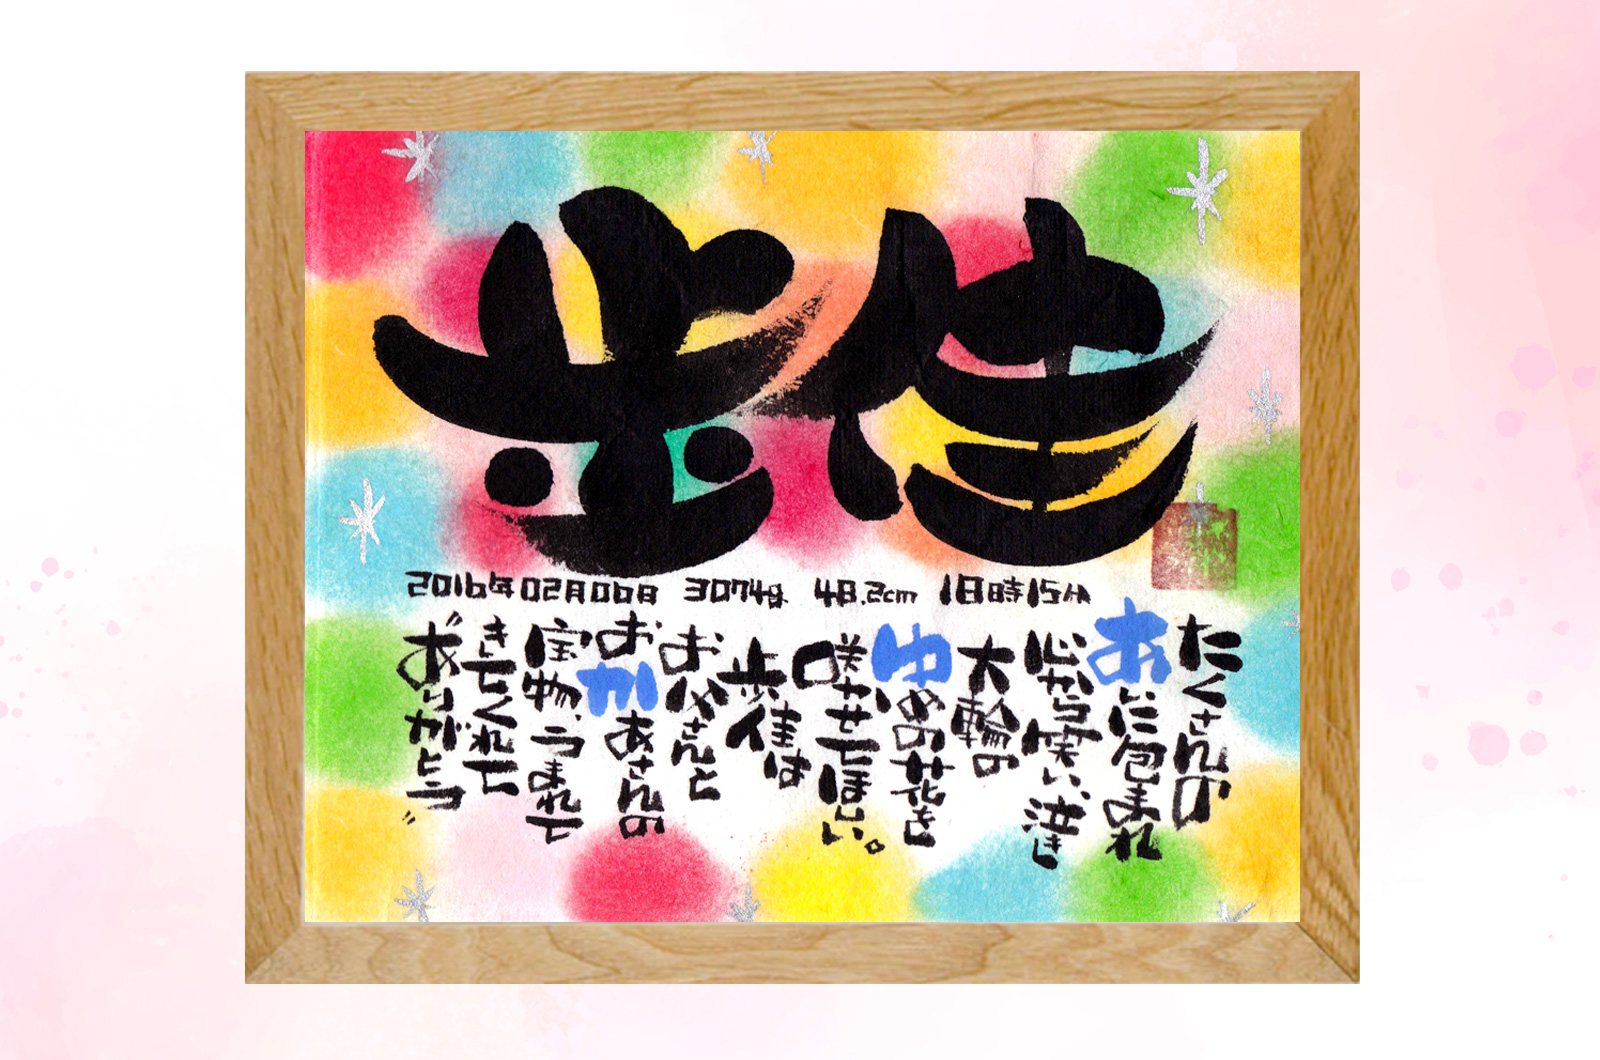 歩佳
2016年02月06日 3074g 48.2cm 18時15分
たくさんの
あいに包まれ
心から笑い、泣き
大輪の
ゆめの花を
咲かせてほしい。
歩佳は
お父さんと
おかあさんの
宝物、うまれて
きてくれて
"ありがとう"